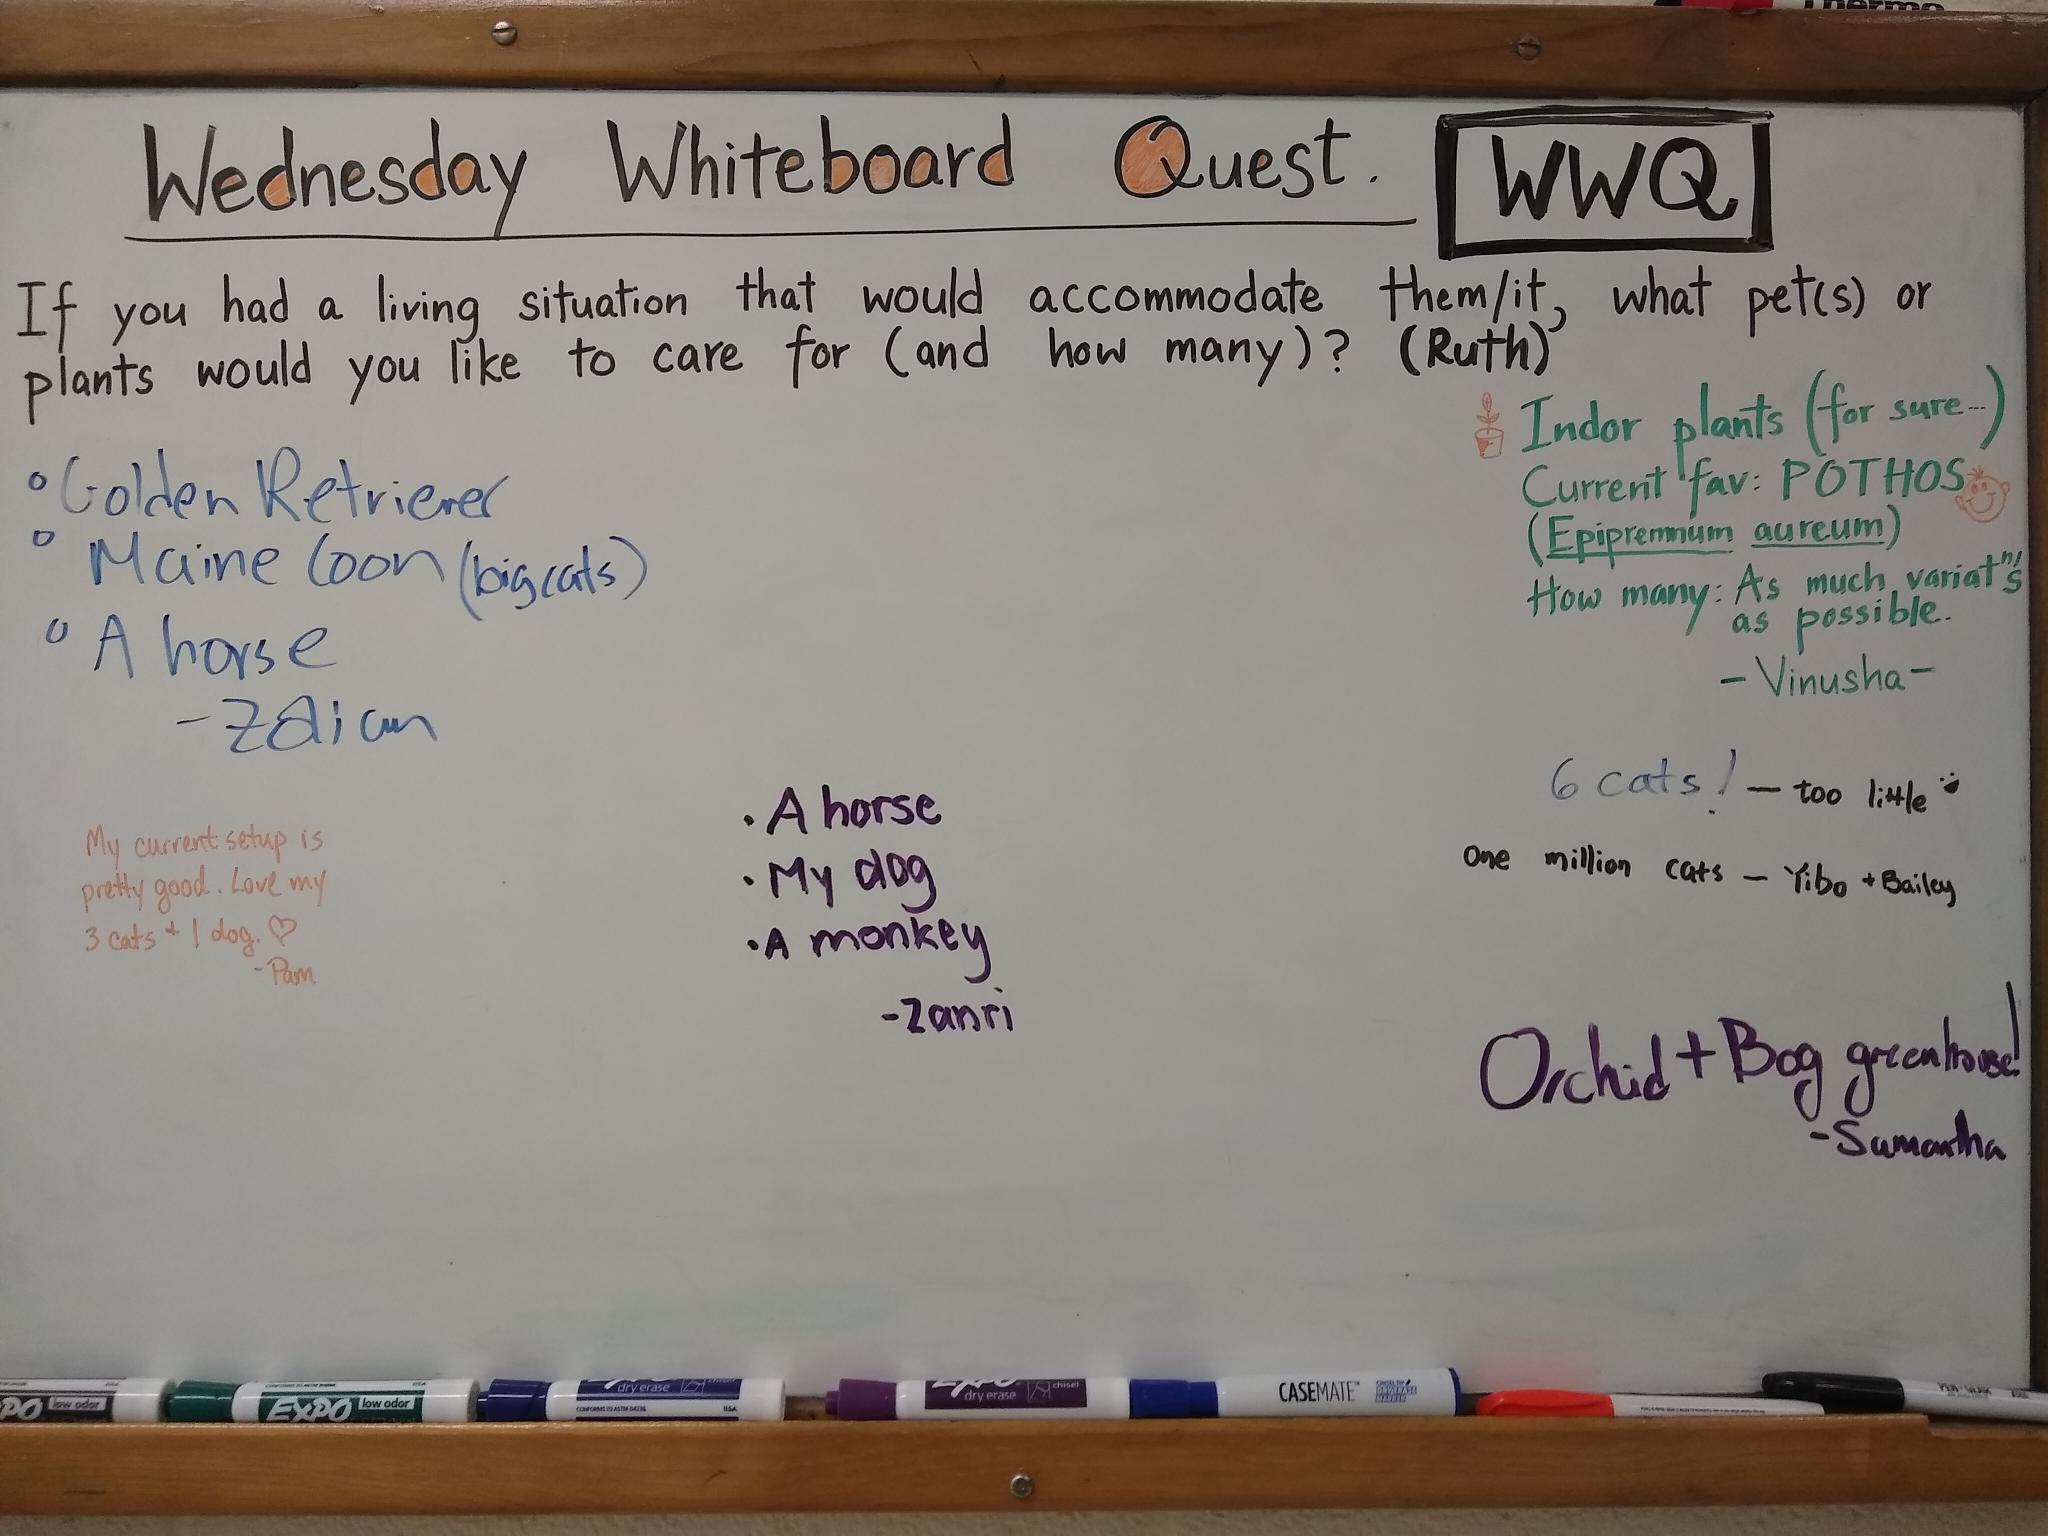 Thermo
Wednesday Whiteboard Quest. WWQ
If you had a living situation that would accommodate them/it, what pet(s) or
plants would you like to care for (and how many)? (Ruth)
° Golden Retriever
° Maine Coon (big cats)
° A horse
- Zdian
My current setup is
pretty good. Love my
3 cats + 1 dog. ♡
- Pam
• A horse
• My dog
• A monkey
- Zanri
Indor plants (for sure...)
Current fav: POTHOS
(Epipremnum aureum)
How many: As much variatn/s
as possible.
- Vinusha -
6 cats! — too little
One million cats — Yibo + Bailey
Orchid + Bog greenhouse!
- Samantha
EXPO low odor
EXPO low odor
dry erase chisel
CONFORMS TO ASTM D4236 USA
EXPO dry erase chisel
CASEMATE